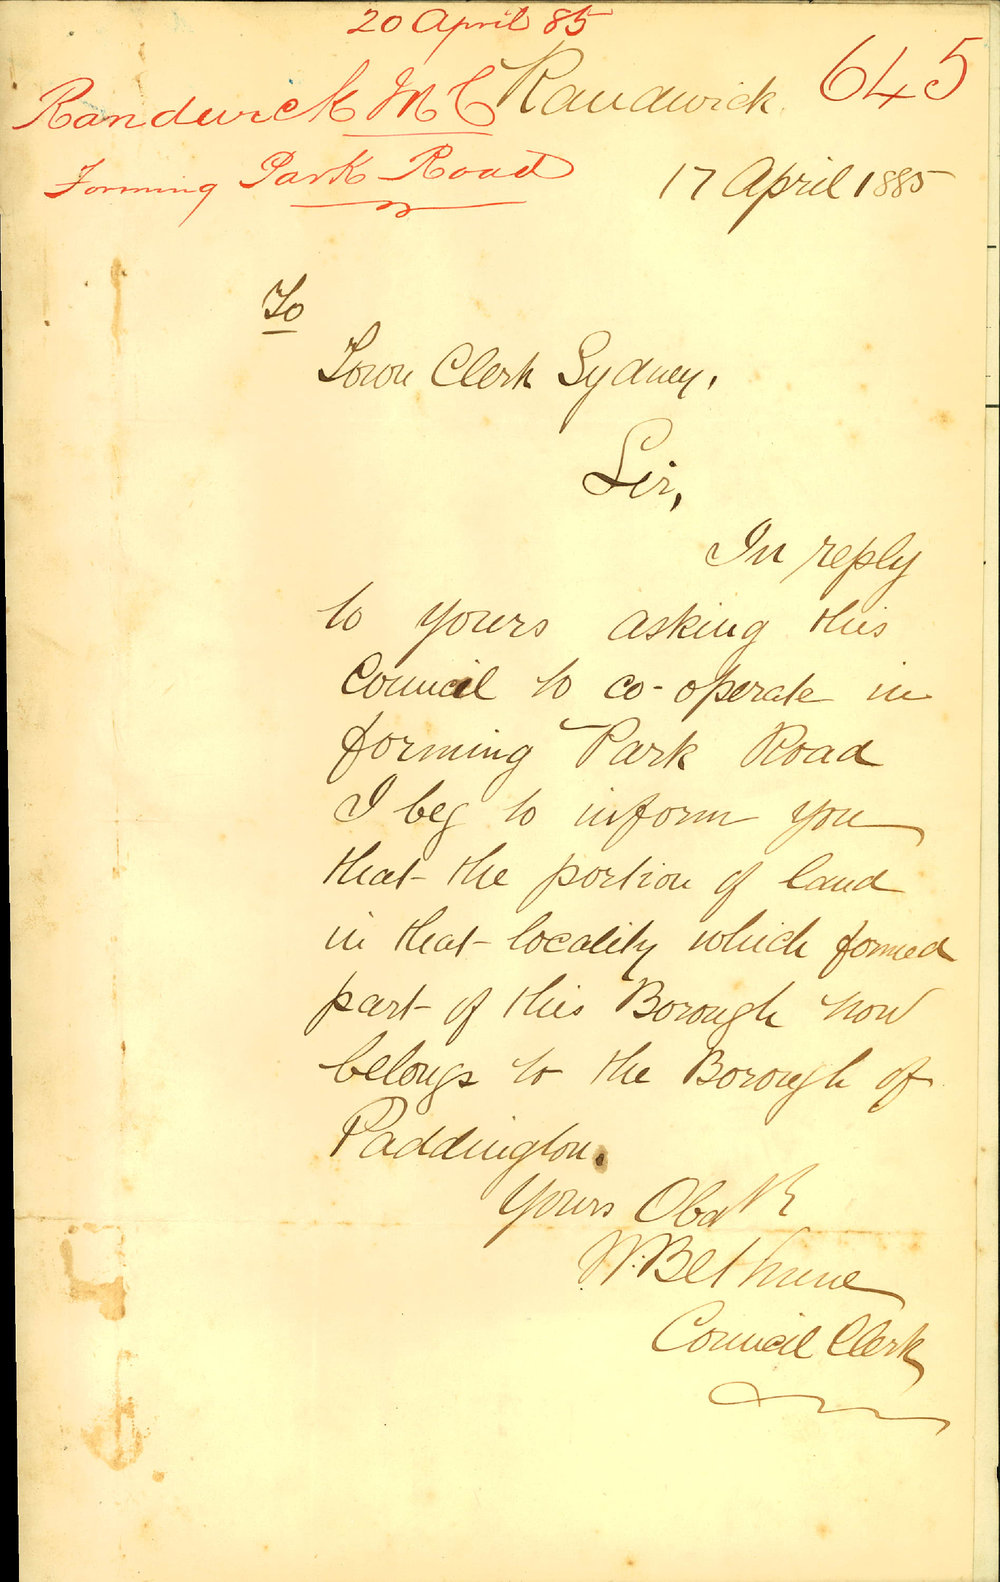 20 April 85
645
Randwick M C
Forming Park Road
Randwick
17 April 1885
To
Town Clerk Sydney.
Sir,
In reply
to yours asking this
Council to co-operate in
forming Park Road
I beg to inform you
that the portion of land
in that locality which formed
part of this Borough now
belongs to the Borough of
Paddington.
Yours Obdt
W. Bethune
Council Clerk